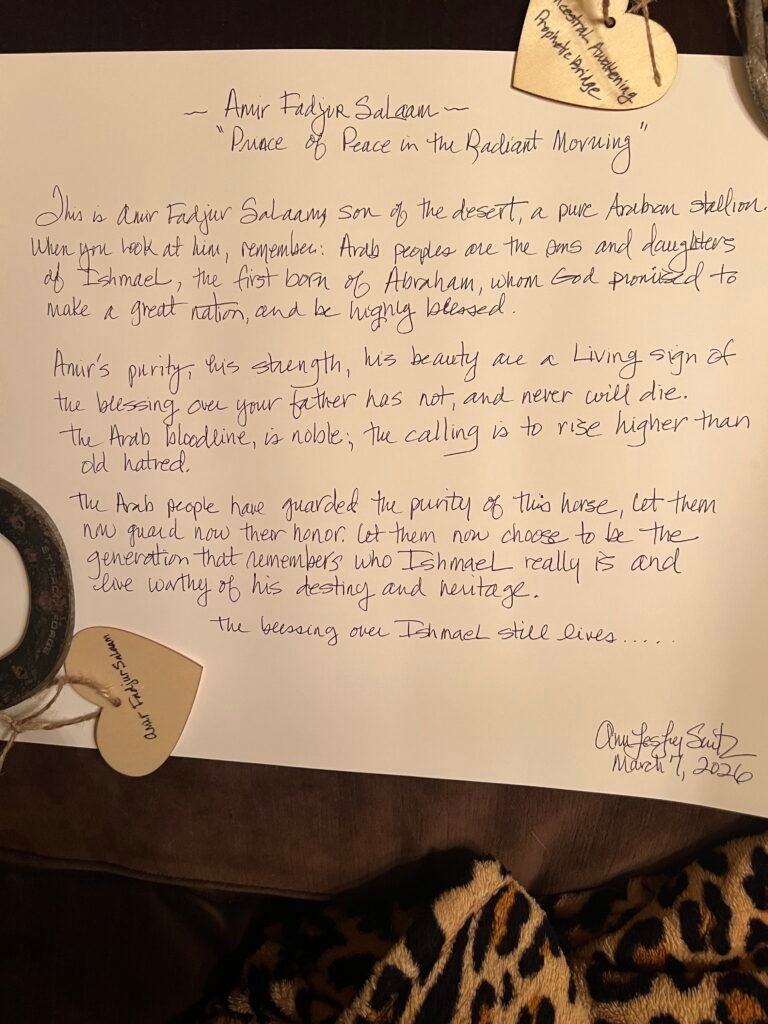 Ancestral Awakening
Prophetic Bridge
~ Amir Fadjur Salaam ~
"Prince of Peace in the Radiant Morning"
This is Amir Fadjur Salaam, son of the desert, a pure Arabian stallion.
When you look at him, remember: Arab peoples are the sons and daughters
of Ishmael, the first born of Abraham, whom God promised to
make a great nation, and be highly blessed.
Amir's purity, his strength, his beauty are a Living sign of
the blessing over your father has not, and never will die.
The Arab bloodline, is noble; the calling is to rise higher than
old hatred.
The Arab people have guarded the purity of this horse, let them
now guard now their honor. Let them now choose to be the
generation that remembers who Ishmael really is and
live worthy of his destiny and heritage.
The blessing over Ishmael still lives.....
Amir Fadjur Salaam
March 7, 2026